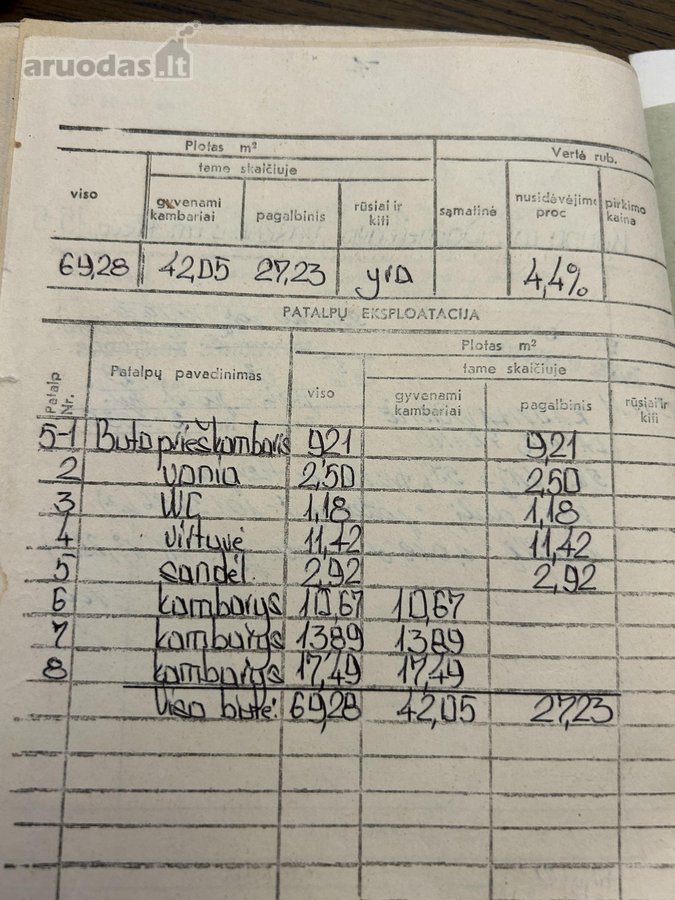 aruodas.lt
Plotas m² Vertė rub.
viso tame skaičiuje
gyvenami kambariai pagalbinis rūsiai ir kiti sąmatinė nusidėvėjimo proc pirkimo kaina
69,28 42,05 27,23 yra 4,4%
PATALPŲ EKSPLOATACIJA
Patalp Nr. Patalpų pavadinimas Plotas m²
viso tame skaičiuje
gyvenami kambariai pagalbinis rūsiai ir kiti
5-1 Buto prieškambaris 9,21 9,21
2 vonia 2,50 2,50
3 WC 1,18 1,18
4 virtuvė 11,42 11,42
5 sandėl. 2,92 2,92
6 kambarys 10,67 10,67
7 kambarys 13,89 13,89
8 kambarys 17,49 17,49
Viso bute: 69,28 42,05 27,23